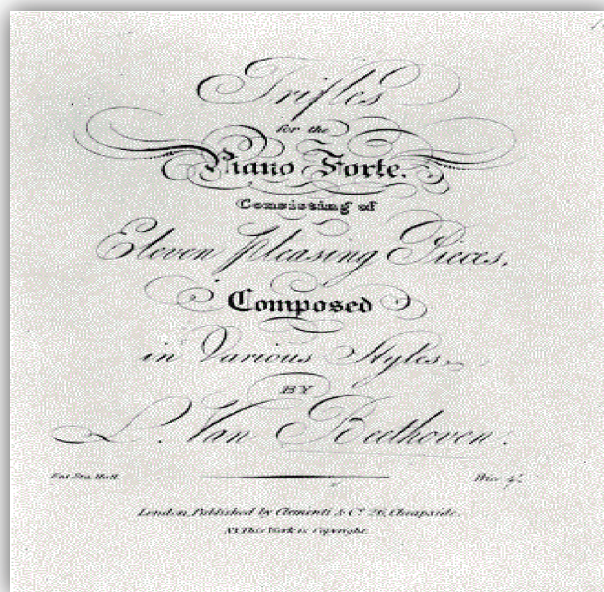 Trifles
for the
Piano Forte.
Consisting of
Eleven pleasing Pieces,
Composed
in Various Styles
BY
L. Van Beethoven.
Ent. Sta. Hall.
Price 4/
London, Published by Clementi & Co. 26, Cheapside.
NB This Work is Copyright.